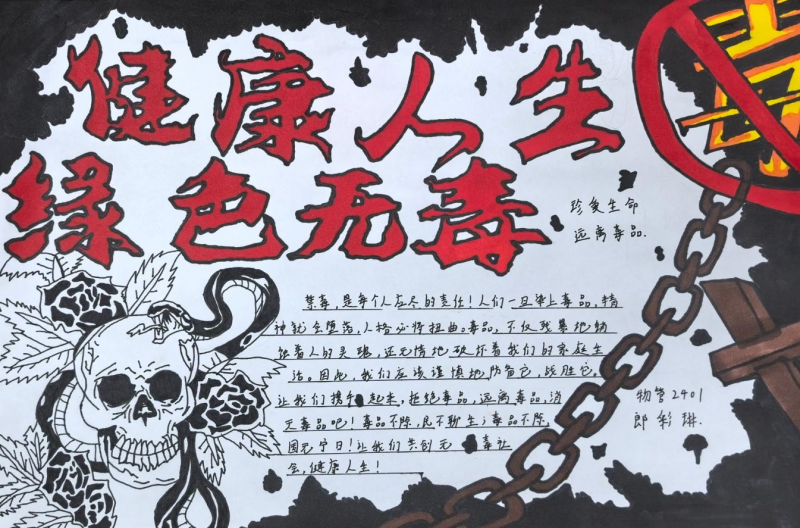 健康人生
绿色无毒
毒
珍爱生命
远离毒品.
禁毒,是每个人应尽的责任!人们一旦染上毒品,精
神就会堕落,人格必将扭曲。毒品,不仅残暴地吞
蚀着人的灵魂,还无情地破坏着我们的家庭生
活。因此,我们应该谨慎地防备它,战胜它,
让我们携手起来,拒绝毒品,远离毒品,消
灭毒品吧!毒品不除,民不聊生;毒品不除,
国无宁日!让我们共创无毒社
会,健康人生!
物管2401
郎彩琳.